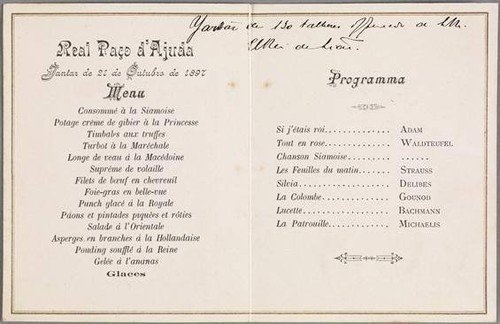 Jantar de 130 talheres offerecido a S.M.
El Rei de Sião.
Real Paço d'Ajuda
Jantar de 21 de Outubro de 1897
Menu
Consommé à la Siamoise
Potage crème de gibier à la Princesse
Timbales aux truffes
Turbot à la Maréchale
Longe de veau à la Macédoine
Suprême de volaille
Filets de bœuf en chevreuil
Foie-gras en belle-vue
Punch glacé à la Royale
Páons et pintades piquées et rôties
Salade à l'Orientale
Asperges en branches à la Hollandaise
Pouding soufflé à la Reine
Gelée à l'ananas
Glaces
Programma
Si j'étais roi.............. ADAM
Tout en rose.............. WALDTEUFEL
Chanson Siamoise.............. ......
Les Feuilles du matin.............. STRAUSS
Silvia.............. DELIBES
La Colombe.............. GOUNOD
Lucette.............. BACHMANN
La Patrouille.............. MICHAELIS